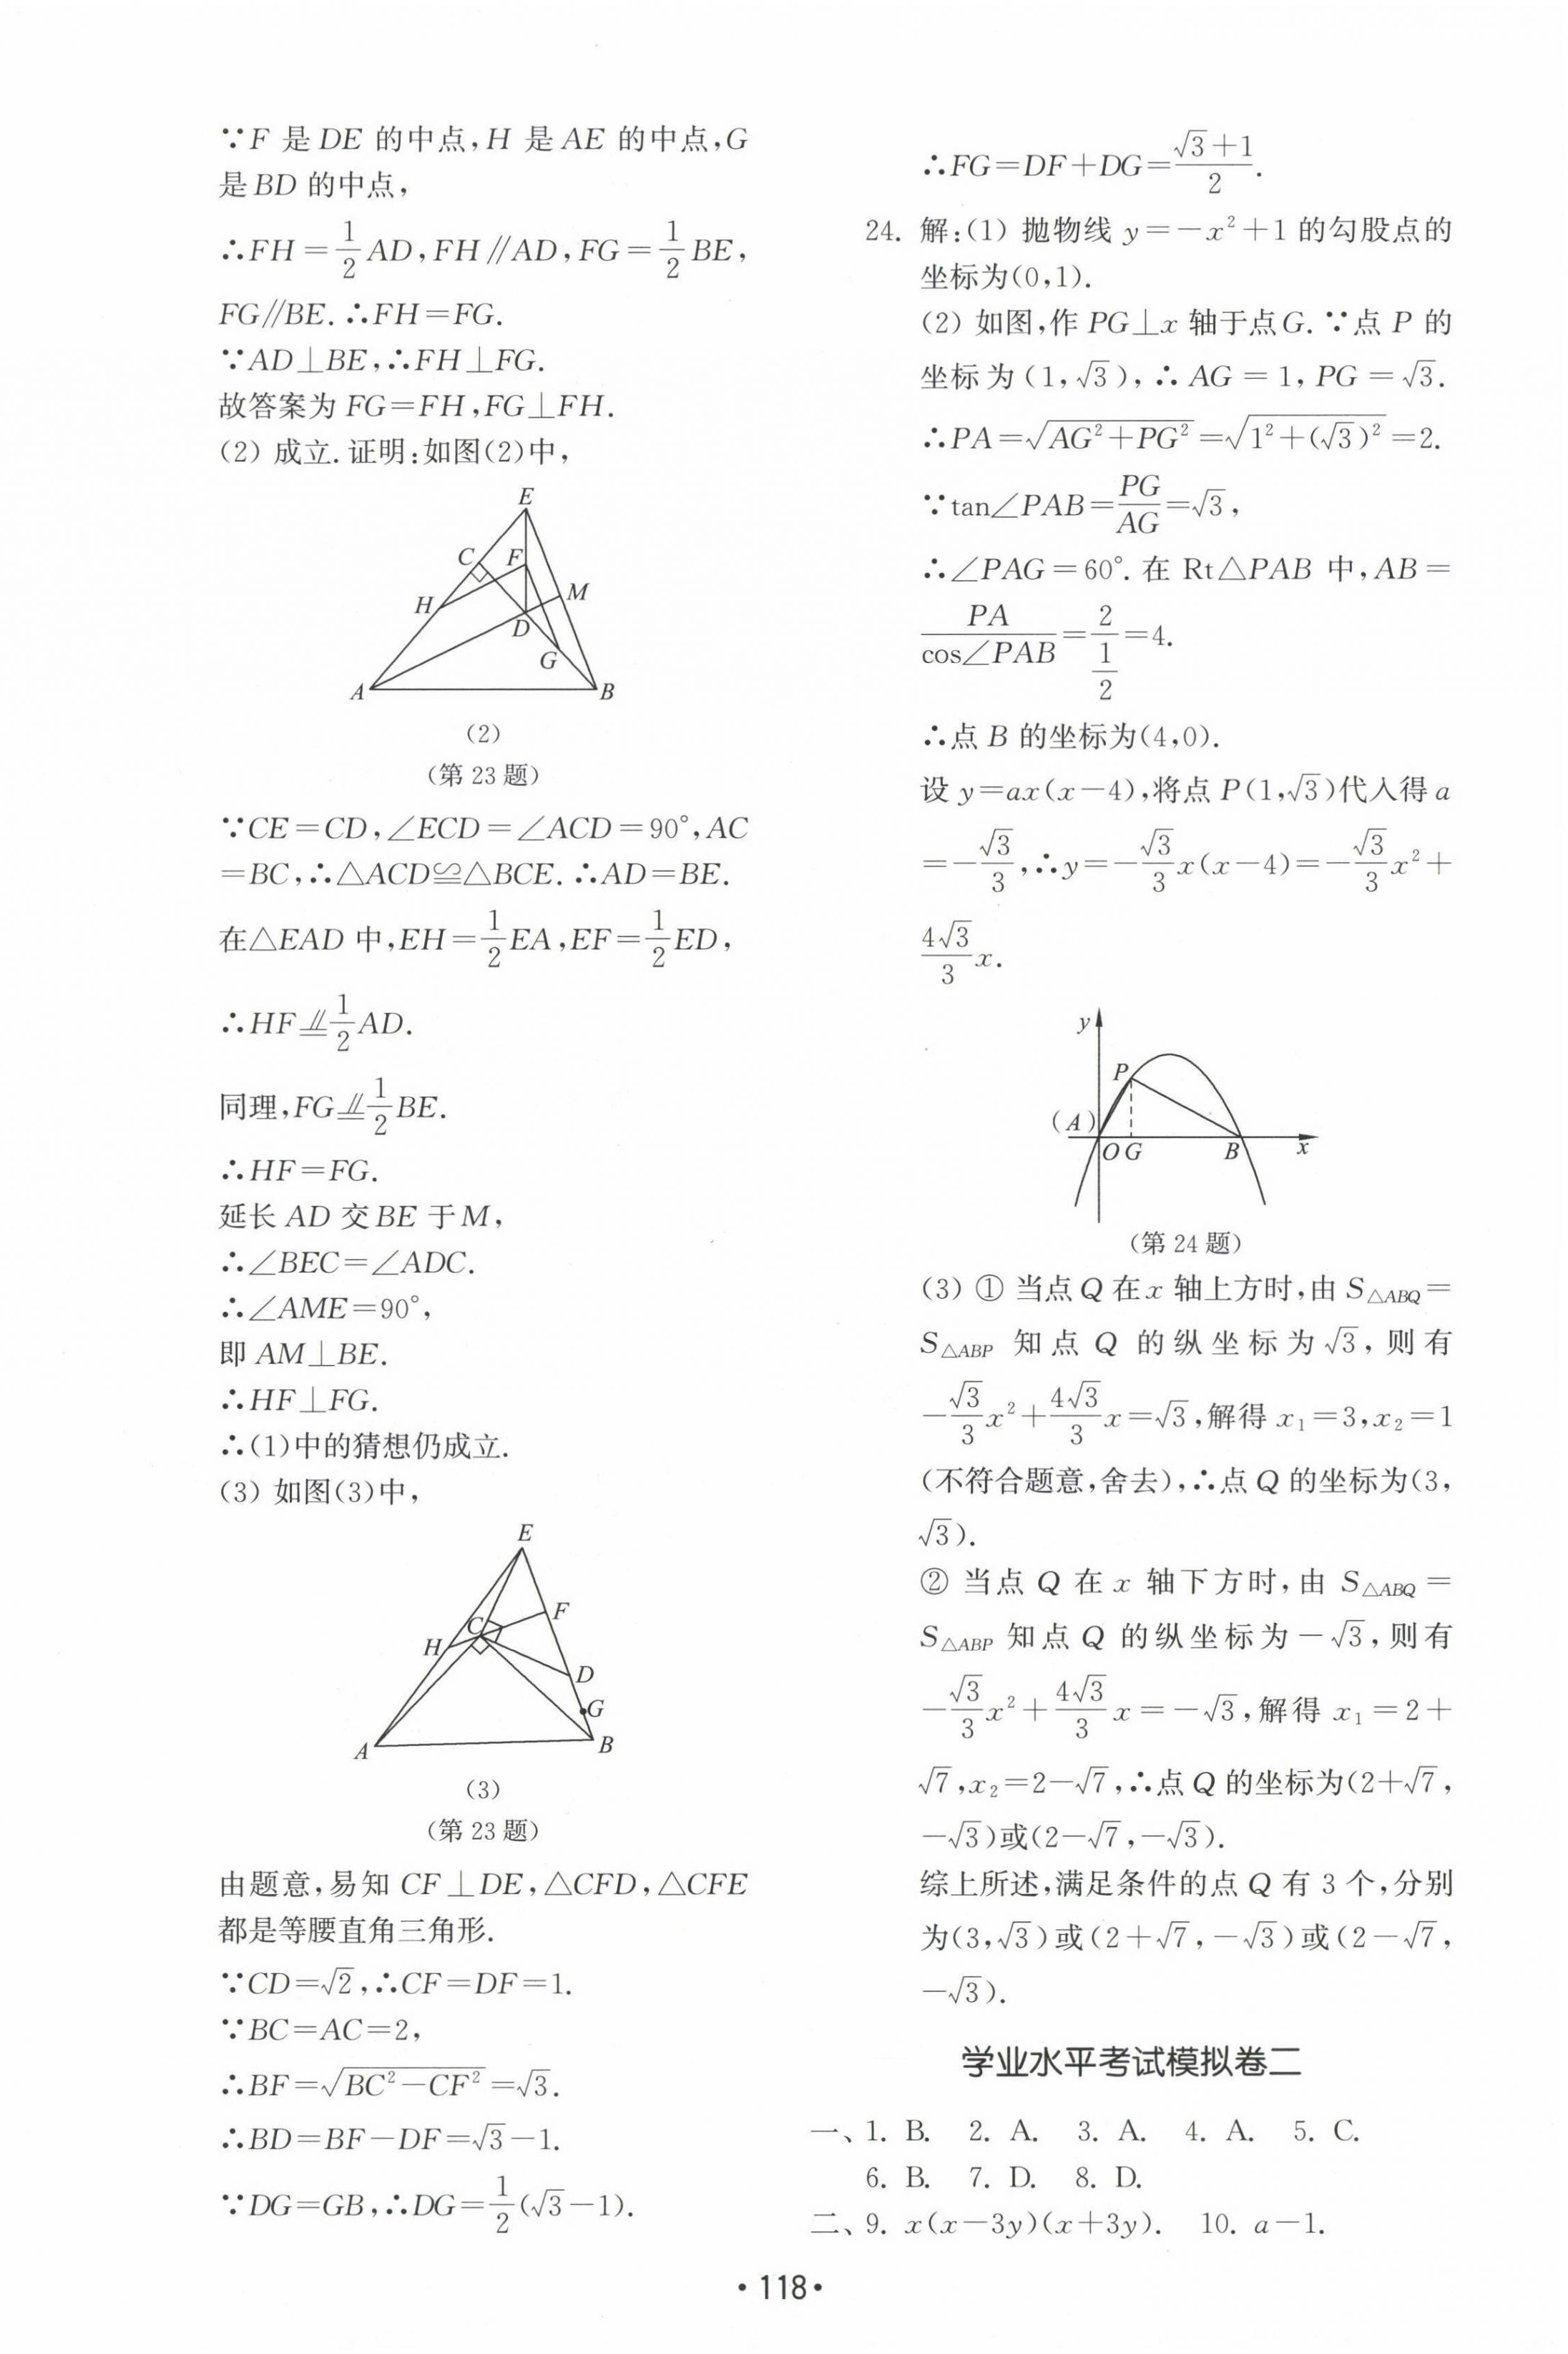 ∵F 是 DE 的中点,H 是 AE 的中点,G
是 BD 的中点,
∴FH=1/2 AD,FH∥AD,FG=1/2 BE,
FG∥BE.∴FH=FG.
∵AD⊥BE,∴FH⊥FG.
故答案为 FG=FH,FG⊥FH.
(2) 成立.证明:如图(2)中,
E
C
F
H
M
D
G
A
B
(2)
(第 23 题)
∵CE=CD,∠ECD=∠ACD=90°,AC
=BC,∴△ACD≌△BCE.∴AD=BE.
在△EAD 中,EH=1/2 EA,EF=1/2 ED,
∴HF∥=1/2 AD.
同理,FG∥=1/2 BE.
∴HF=FG.
延长 AD 交 BE 于 M,
∴∠BEC=∠ADC.
∴∠AME=90°,
即 AM⊥BE.
∴HF⊥FG.
∴(1)中的猜想仍成立.
(3) 如图(3)中,
E
C
F
H
D
G
A
B
(3)
(第 23 题)
由题意,易知 CF⊥DE,△CFD,△CFE
都是等腰直角三角形.
∵CD=√2,∴CF=DF=1.
∵BC=AC=2,
∴BF=√(BC²-CF²)=√3.
∴BD=BF-DF=√3-1.
∵DG=GB,∴DG=1/2(√3-1).
∴FG=DF+DG=(√3+1)/2.
24. 解:(1) 抛物线 y=-x²+1 的勾股点的
坐标为(0,1).
(2) 如图,作 PG⊥x 轴于点G.∵点 P 的
坐标为(1,√3),∴AG=1,PG=√3.
∴PA=√(AG²+PG²)=√(1²+(√3)²)=2.
∵tan∠PAB=PG/AG=√3,
∴∠PAG=60°.在 Rt△PAB 中,AB=
PA/cos∠PAB=2/(1/2)=4.
∴点 B 的坐标为(4,0).
设 y=ax(x-4),将点 P(1,√3)代入得 a
=-√3/3,∴y=-√3/3 x(x-4)=-√3/3 x²+
4√3/3 x.
y
P
(A)
O
G
B
x
(第 24 题)
(3) ① 当点 Q 在 x 轴上方时,由 S△ABQ=
S△ABP 知点 Q 的纵坐标为√3,则有
-√3/3 x²+4√3/3 x=√3,解得 x₁=3,x₂=1
(不符合题意,舍去),∴点 Q 的坐标为(3,
√3).
② 当点 Q 在 x 轴下方时,由 S△ABQ=
S△ABP 知点 Q 的纵坐标为-√3,则有
-√3/3 x²+4√3/3 x=-√3,解得 x₁=2+
√7,x₂=2-√7,∴点 Q 的坐标为(2+√7,
-√3)或(2-√7,-√3).
综上所述,满足条件的点 Q 有 3 个,分别
为(3,√3)或(2+√7,-√3)或(2-√7,
-√3).
学业水平考试模拟卷二
一、1. B. 2. A. 3. A. 4. A. 5. C.
6. B. 7. D. 8. D.
二、9. x(x-3y)(x+3y). 10. a-1.
·118·